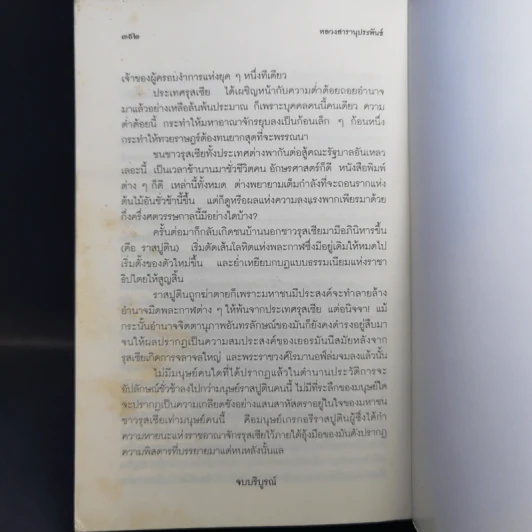 ๓๕๒
หลวงสารานุประพันธ์
เจ้าของผู้ครอบงำการแห่งยุค ๆ หนึ่งทีเดียว
ประเทศรุสเซีย ได้เผชิญหน้ากับความต่ำต้อยถอยอำนาจ
มาแล้วอย่างเหลือล้นพ้นประมาณ ก็เพราะบุคคลคนนี้คนเดียว ความ
ต่ำต้อยนี้ กระทำให้มหาอาณาจักรยุบลงเป็นก้อนเล็ก ๆ ก้อนหนึ่ง
กระทำให้ทวยราษฎร์ต้องทนยากสุดที่จะพรรณนา
ชนชาวรุสเซียทั้งประเทศต่างพากันต่อสู้คณะรัฐบาลอันเหลว
เลอะนี้ เป็นเวลาช้านานมาชั่วชีวิตคน อักษรศาสตร์ก็ดี หนังสือพิมพ์
ต่าง ๆ ก็ดี เหล่านี้ทั้งหมด ต่างพยายามเต็มกำลังที่จะถอนรากแห่ง
ต้นไม้อันชั่วช้านี้ขึ้น แต่ก็ดูหรือผลแห่งความลงแรงพากเพียรมาด้วย
กึ่งครึ่งศตวรรษกาลนี้มีอย่างใดบ้าง?
ครั้นต่อมาก็กลับเกิดชนบ้านนอกชาวรุสเซียมามีอภินิหารขึ้น
(คือ ราสปูติน) เริ่มตัดเส้นโลหิตแห่งพละกาฬซึ่งมีอยู่เดิมให้หมดไป
เริ่มตั้งของตัวใหม่ขึ้น และย่ำเหยียบกบฏแบบธรรมเนียมแห่งราชา
ธิปไตยให้สูญสิ้น
ราสปูตินถูกฆ่าตายก็เพราะมหาชนมีประสงค์จะทำลายล้าง
อำนาจมืดพละกาฬต่าง ๆ ให้พ้นจากประเทศรุสเซีย แต่อนิจจา! แม้
กระนั้นอำนาจจิตตานุภาพอันทรลักษณ์ของมันก็ยังคงดำรงอยู่สืบมา
จนให้ผลปรากฏเป็นความสมประสงค์ของเยอรมันนีสมัยหลังจาก
รุสเซียเกิดการจลาจลใหญ่ และพระราชวงศ์โรมานอฟล่มจมลงแล้วนั้น
ไม่มีมนุษย์คนใดที่ได้ปรากฏแล้วในตำนานประวัติการจะ
อัปลักษณ์ชั่วช้าลงไปกว่ามนุษย์ราสปูตินคนนี้ ไม่มีที่ระลึกของมนุษย์ใด
จะปรากฏเป็นความเกลียดชังอย่างแสนสาหัสตราอยู่ในใจของมหาชน
ชาวรุสเซียเท่ามนุษย์คนนี้ คือมนุษย์เกรกอรีราสปูตินผู้ซึ่งได้กำ
ความหายนะแห่งราชอาณาจักรรุสเซียไว้ภายใต้อุ้งมือของมันดังปรากฏ
ความพิสดารที่บรรยายมาแต่หนหลังนั้นแล
จบบริบูรณ์